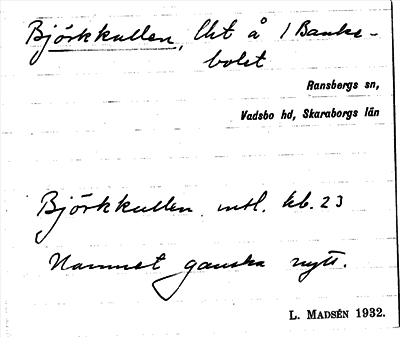 Björkkullen, lht å 1 Banke-
bolet
Ransbergs sn,
Vadsbo hd, Skaraborgs län
Björkkullen mtl. kb. 23
Namnet ganska nytt.
L. MADSÉN 1932.